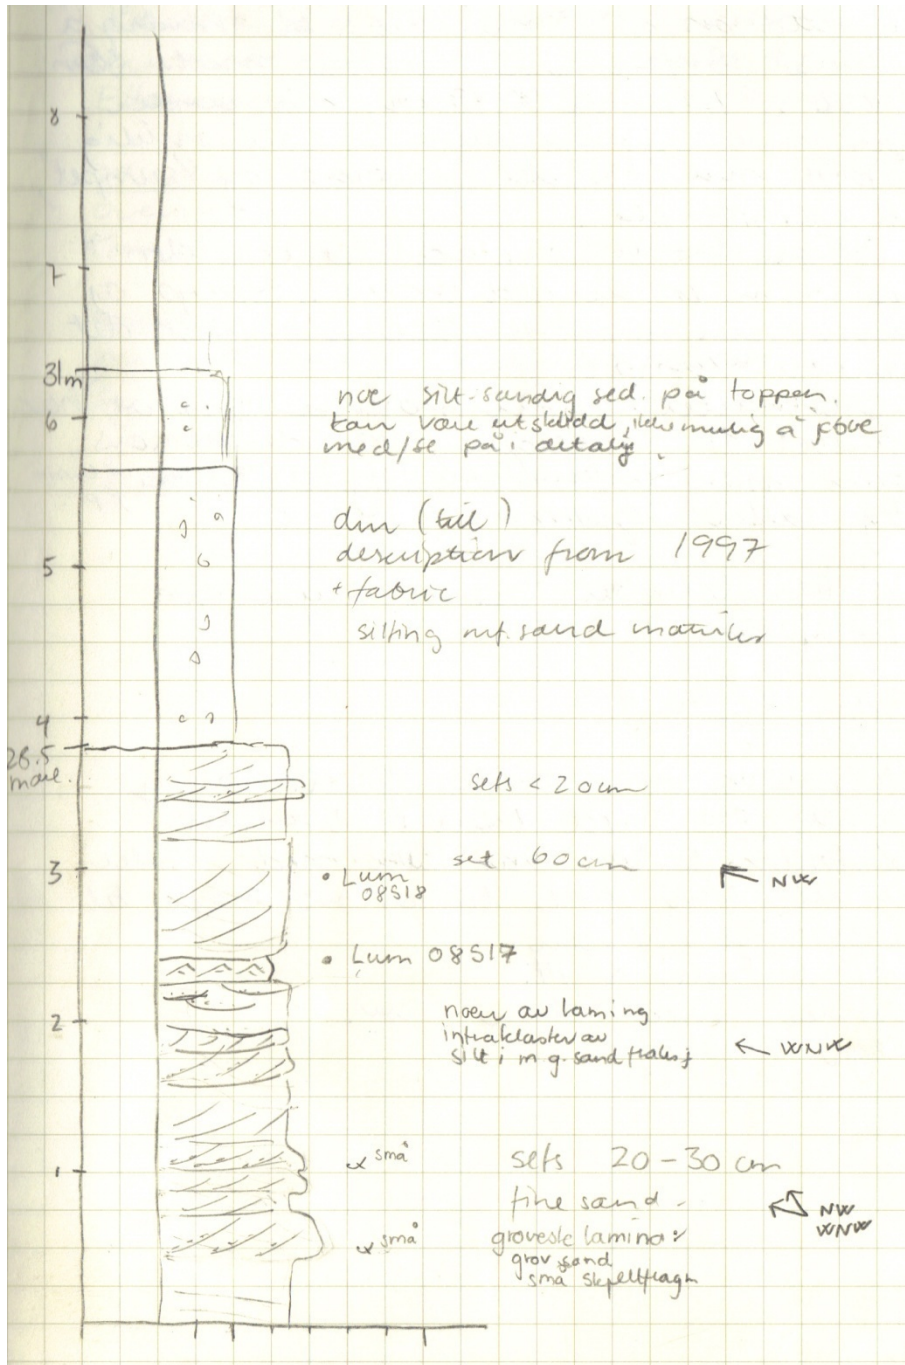 8
7
31m
noe silt-sandig sed. på toppen.
6
kan være utskledd, ikke mulig å
med/se på i detalj.
dm (till)
description from 1997
5
+ fabric
silting m.f. sand matriks
4
28.5
moh.
sets < 20 cm
set 60 cm
3
• Lum
08518
NW
• Lum 08517
noen av laming
2
intraklaster av
silt i m g. sand
WNW
små
sets 20-30 cm
1
fine sand -
NW
WNW
små
groveste lamina:
grov sand
små skjellfragm